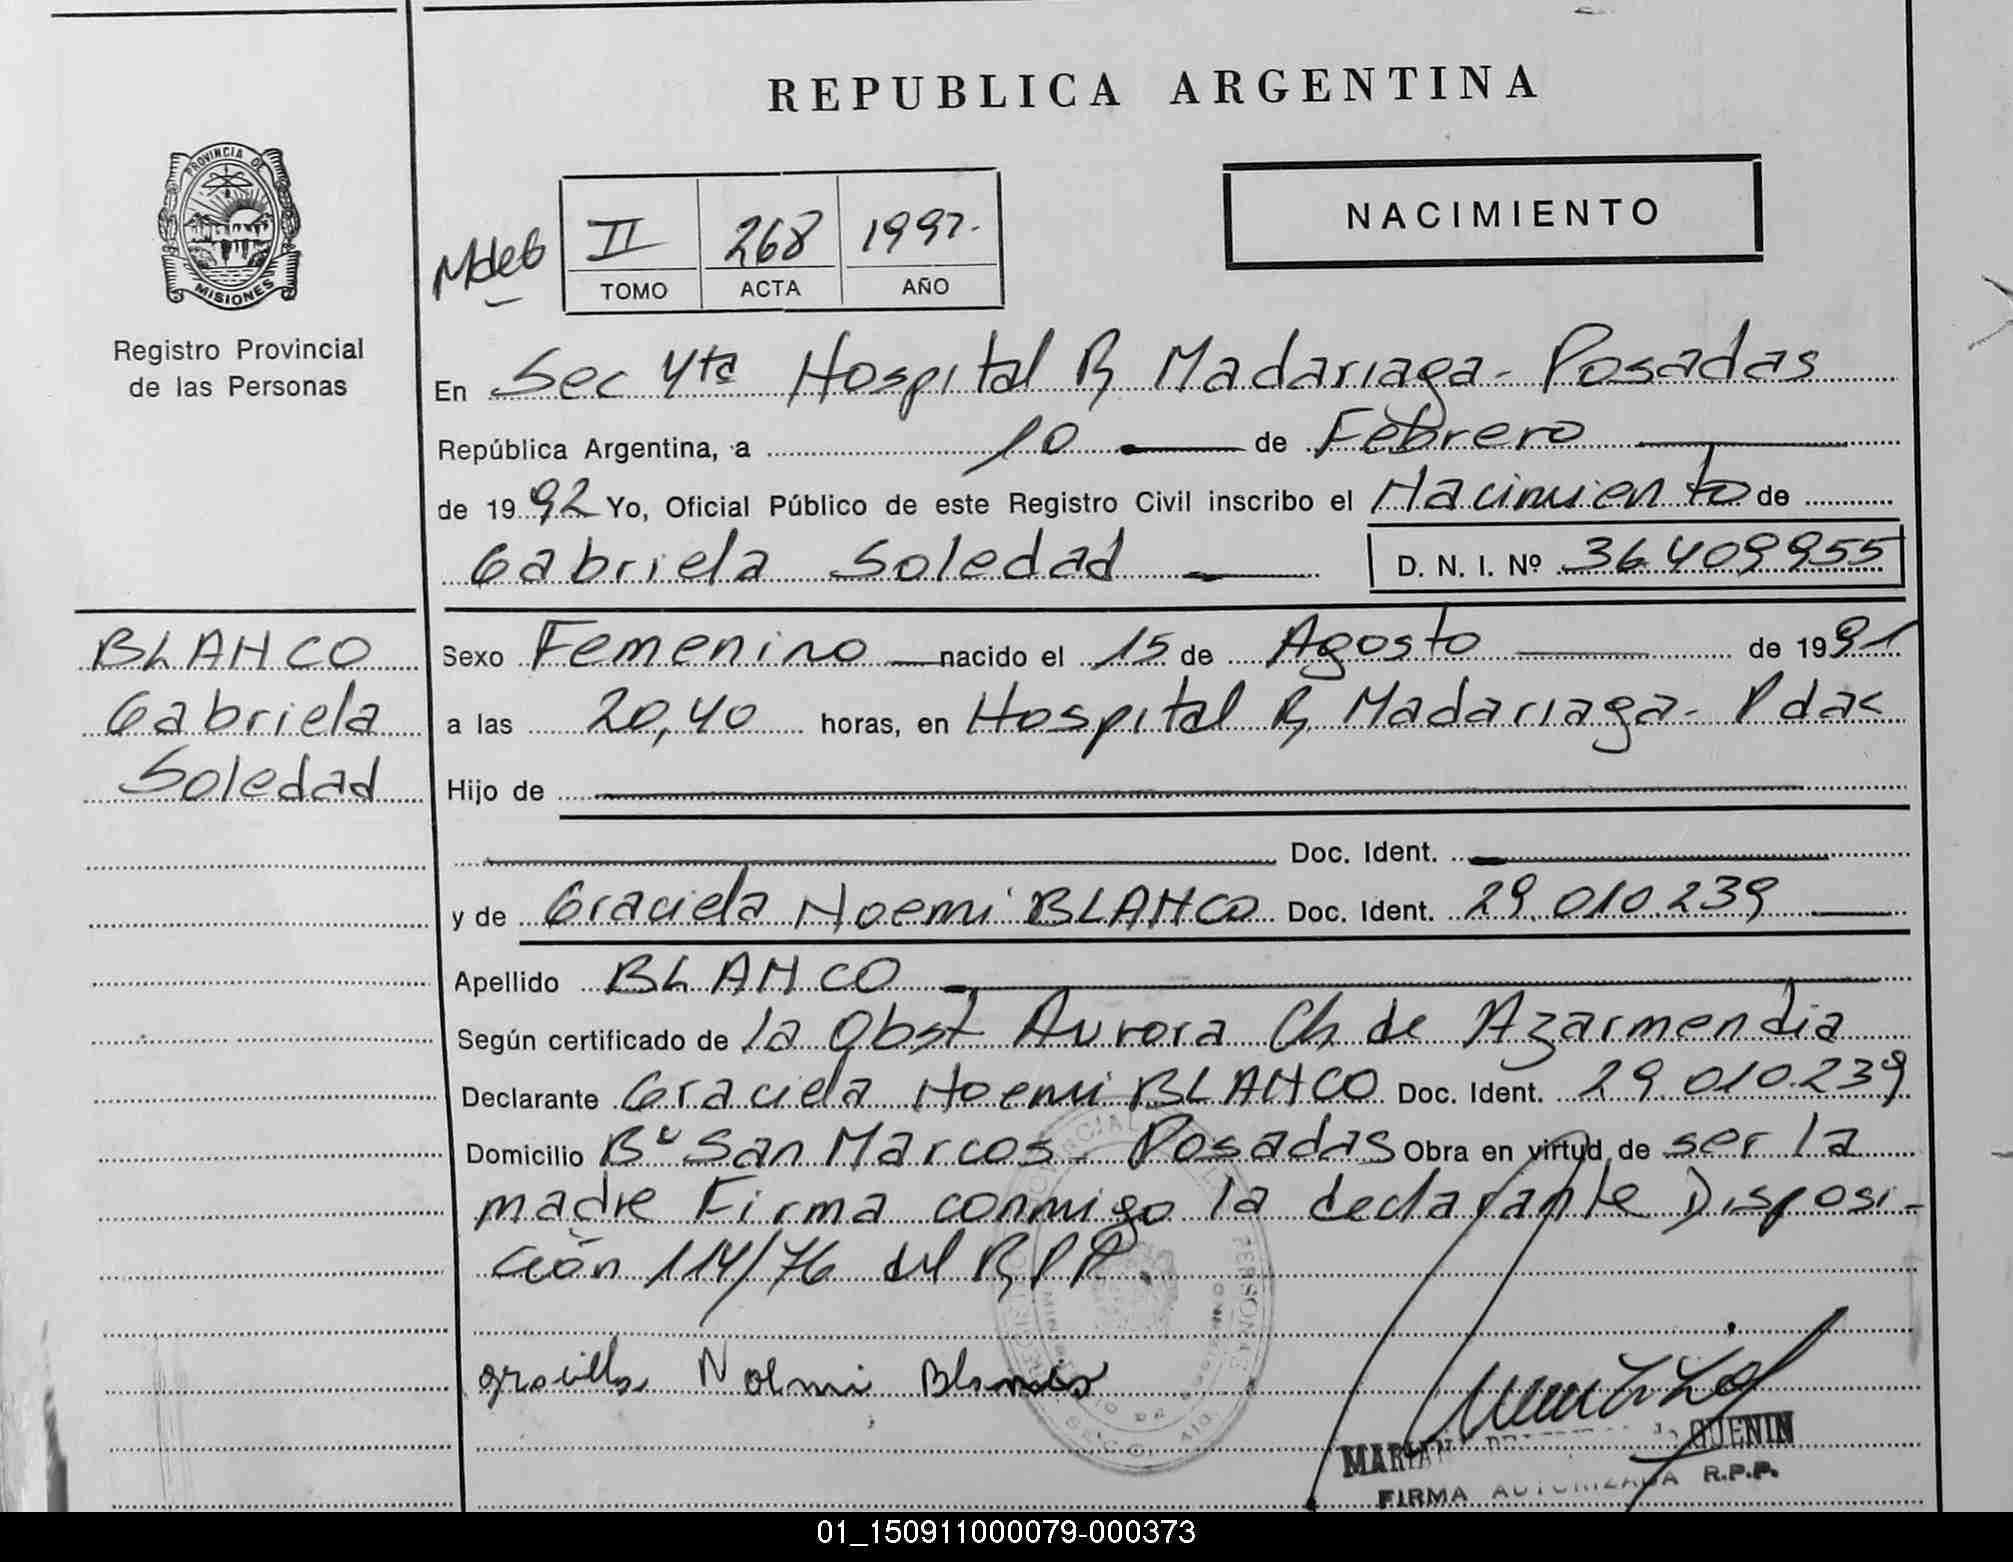 REPUBLICA ARGENTINA
PROVINCIA DE
MISIONES
Registro Provincial
de las Personas
NACIMIENTO
II 268 1992.
TOMO ACTA AÑO
En Sec 4ta Hospital R Madariaga - Posadas
República Argentina, a 10 de Febrero
de 1992 Yo, Oficial Público de este Registro Civil inscribo el Nacimiento de
Gabriela Soledad D. N. I. Nº 36409955
BLANCO
Gabriela
Soledad
Sexo Femenino nacido el 15 de Agosto de 1991
a las 20,40 horas, en Hospital R Madariaga - Pdas
Hijo de
Doc. Ident.
y de Graciela Noemi BLANCO Doc. Ident. 29.010.239
Apellido BLANCO
Según certificado de la Obst Aurora Ch de Azarmendia
Declarante Graciela Noemi BLANCO Doc. Ident. 29.010.239
Domicilio Bº San Marcos - Posadas Obra en virtud de ser la
madre Firma conmigo la declarante Disposi-
ción 114/76 del R P P.
graciela Noemi Blanco
GUENIN
FIRMA AUTORIZADA R.P.P.
01_150911000079-000373